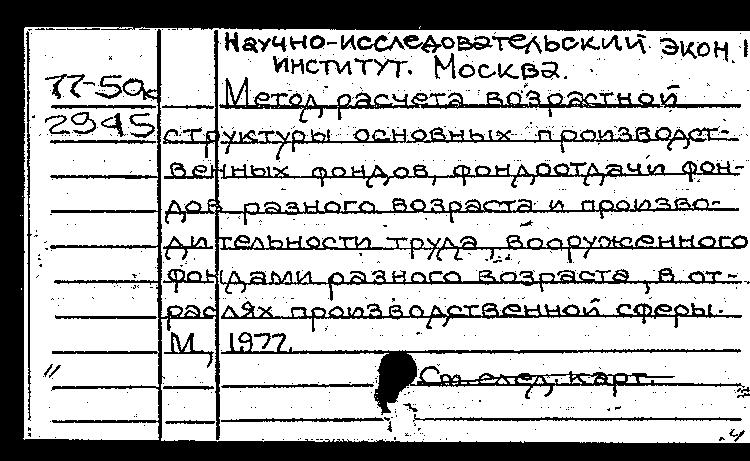 Научно-исследовательский экон.
институт. Москва.
77-50к
2945
Метод расчета возрастной
структуры основных производст-
венных фондов, фондоотдачи фон-
дов разного возраста и произво-
дительности труда, вооруженного
фондами разного возраста, в от-
раслях производственной сферы.
М., 1977.
См. след. карт.